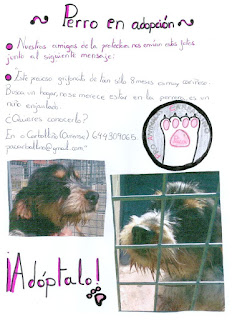 Perro en adopción
Nuestros amigos de la protectora nos envían esta foto
junto al siguiente mensaje:
"Este precioso grifonato de tan sólo 8 meses es muy cariñoso.
Busca un hogar, no se merece estar en la perrera, es un
niño enjaulado.
¿Quieres conocerlo?
En o Carballiño (Ourense) 649.809065.
¡Adóptalo!